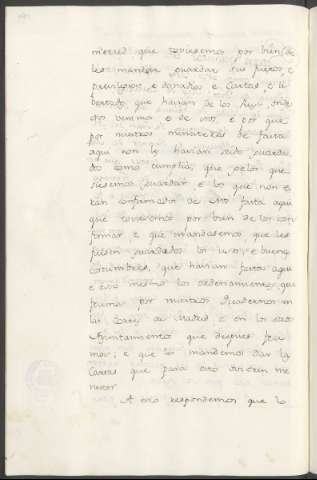 merced que toviesemos por bien de
les mandar guardar sus fueros, e
previlegios, e donadíos e Cartas e li
bertades que havian de los Reyes onde
nos venimos e de nos, e por que
por nuestros menesteres de fasta
aqui non les havian sido guarda
dos como cumplia, que pelos qui
siesemos guardar e los que non es
tan confirmados de nos fasta aqui
que toviesemos por bien de los con
firmar e que mandasemos que les
fuesen guardados los usos, e buenas
costumbres, que havian fasta aqui
e eso mesmo los ordenamientos que
fecimos por nuestros Quadernos en
las Cortes de Madrid e en los otros
Ayuntamientos que despues feci
mos; e que les mandemos dar las
Cartas que para esto ovieren me
nester
A esto respondemos que lo